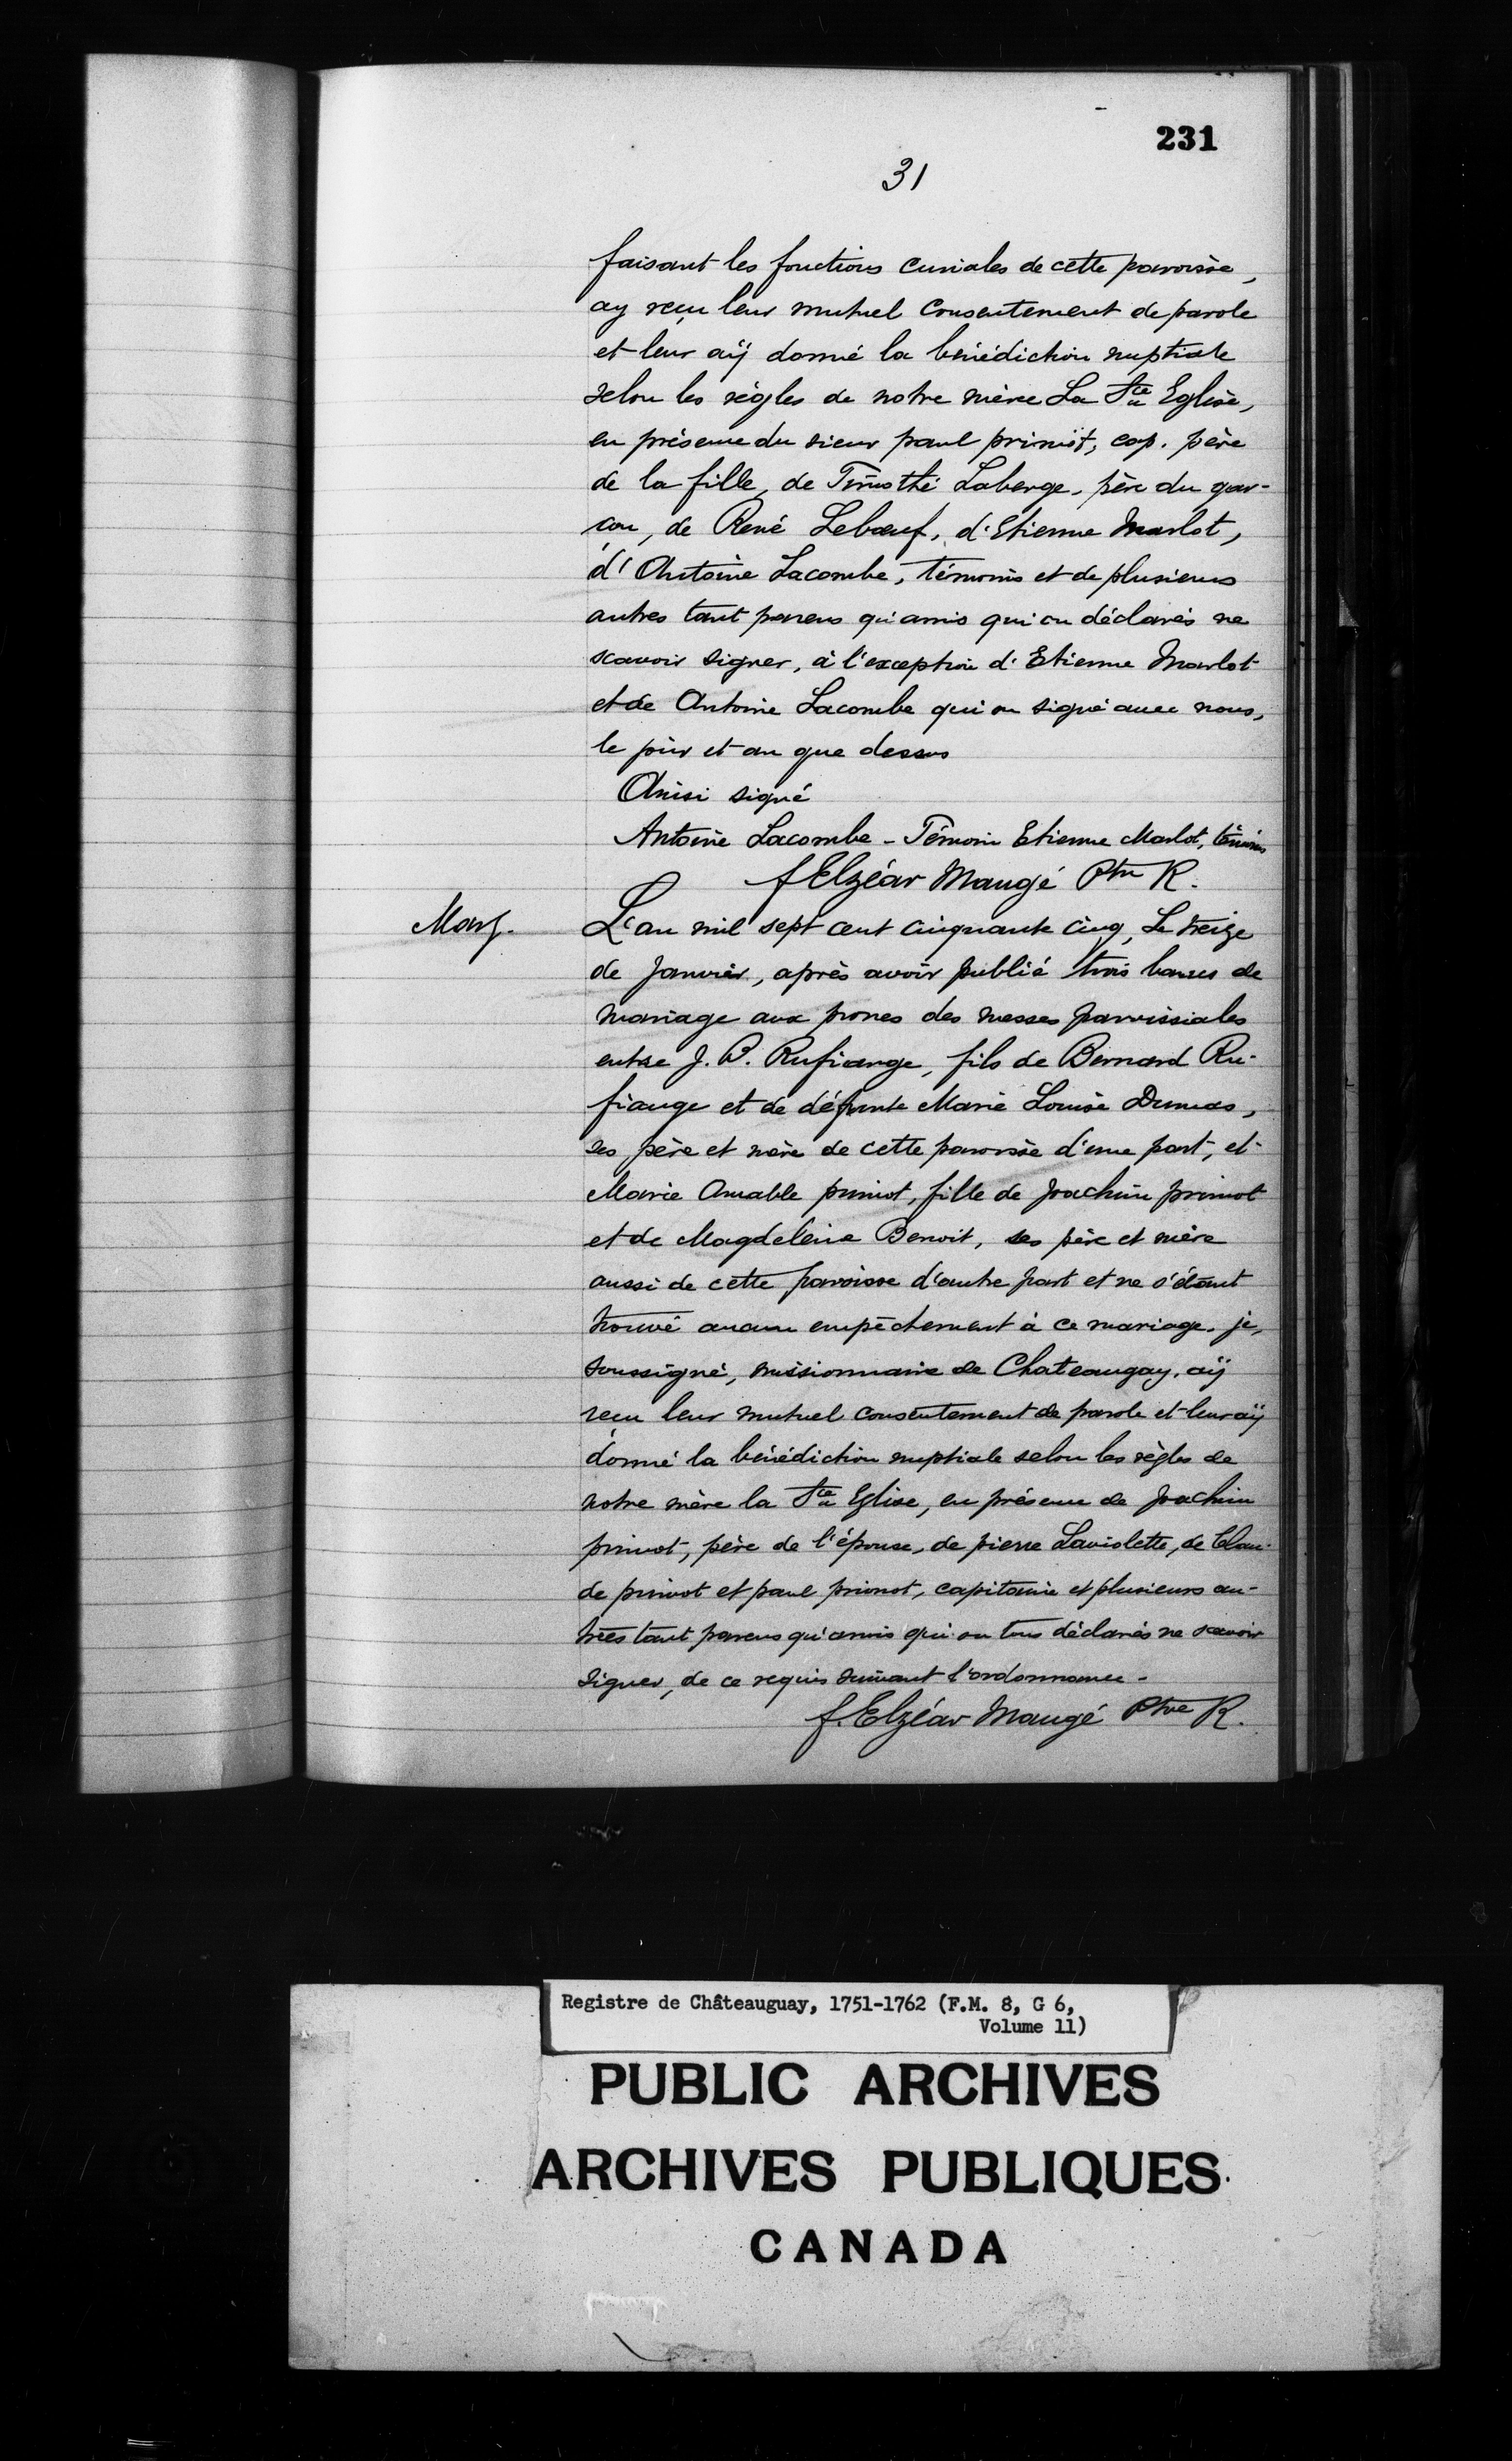 231
31
faisant les fonctions curiales de cette paroisse,
ay reçu leur mutuel consentement de parole
et leur aÿ donné la bénédiction nuptiale
selon les règles de notre mère La Ste Eglise,
en présence du sieur paul primöt, cap. père
de la fille, de Timothé Laberge, père du gar-
çon, de René Lebœuf, d'Etienne Marlot,
d'Antoine Lacombe, témoins et de plusieurs
autres tant parens qu'amis qui on déclarés ne
scavoir signer, à l'exception d'Etienne Marlot
et de Antoine Lacombe qui on signé avec nous,
le jour et an que dessus
Ainsi signé
Antoine Lacombe - Témoin Etienne Marlot, témoin
f Elzéar Maugé Ptre R.
Marj.
L'an mil sept cent cinquante cinq, Le treize
de Janvier, après avoir publié trois bances de
mariage aux prones des messes parroissiales
entre J. B. Rufiange, fils de Bernard Ru-
fiange et de défunte Marie Louise Dumas,
ses père et mère de cette paroisse d'une part, et
Marie Amable primot, fille de Joachim primot
et de Magdeleine Benoit, ses père et mère
aussi de cette paroisse d'autre part et ne s'étant
trouvé aucun empêchement à ce mariage, je,
soussigné, missionnaire de Chateaugay, aÿ
reçu leur mutuel consentement de parole et leur aÿ
donné la bénédiction nuptiale selon les règles de
notre mère la Ste Eglise, en présence de Joachim
primot, père de l'épouse, de pierre Laviolette, de Clau-
de primot et paul primot, capitaine et plusieurs au-
tres tant parens qu'amis qui on tous déclarés ne scavoir
signer, de ce requis suivant l'ordonnance.
f. Elzéar Maugé Ptre R.
Registre de Châteauguay, 1751-1762 (F.M. 8, G 6,
Volume 11)
PUBLIC ARCHIVES
ARCHIVES PUBLIQUES
CANADA